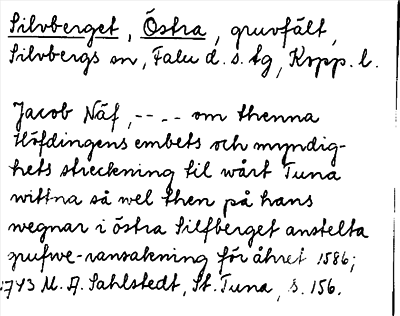 Silvberget, Östra, gruvfält,
Silvbergs sn, Falu d. s. tg, Kopp. l.
Jacob Näf, -- -- om thenna
Höfdingens embets och myndig-
hets streckning til wårt Tuna
wittna så wel then på hans
wegnar i östra Silfberget anstelta
grufwe-ransakning för åhret 1586;
1743 M. A. Sahlstedt, St. Tuna, s. 156.